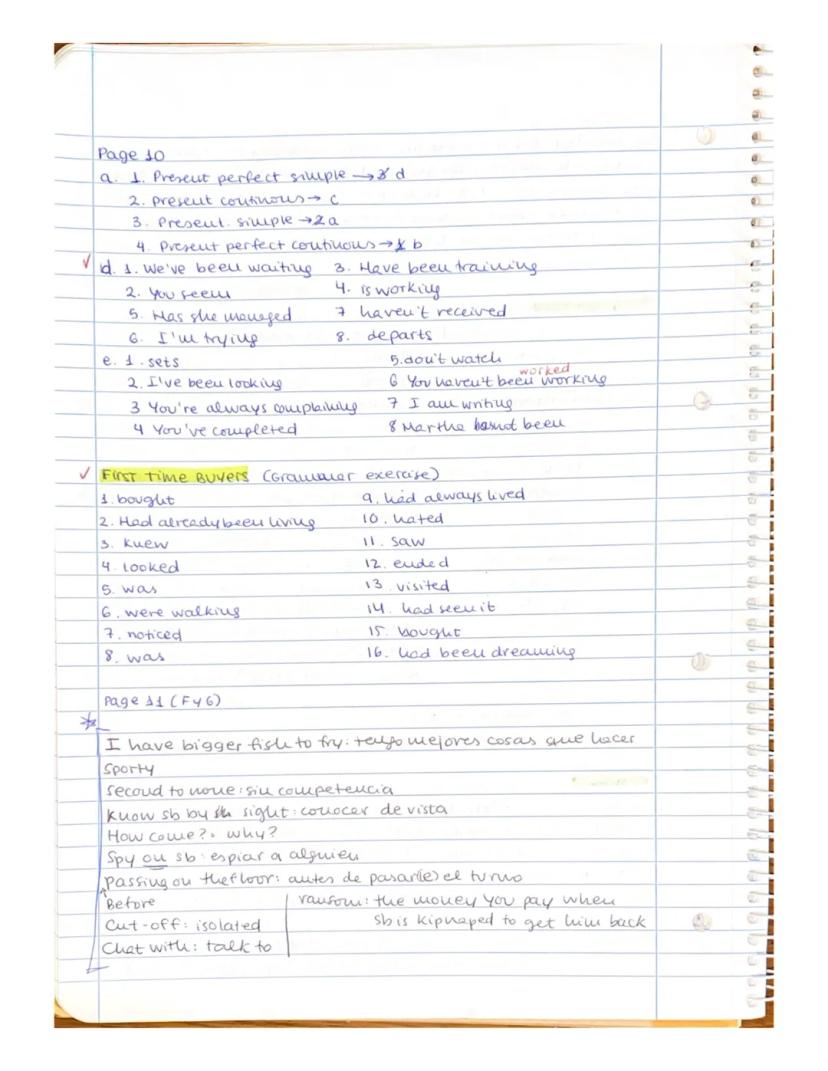 Page 10
a. 1. Present perfect simple → d
2. present continous → c
3. Present. simple → a
4. Present perfect continuous → b
✓ d. 1. We've been waiting 3. Have been training
2. You seem 4. is working
5. Has she managed 7 haven't received
6. I'm trying 8. departs
e. 1. sets 5. don't watch
worked
2. I've been looking 6 You haven't been working
3 You're always complaining 7 I am writing
4 You've completed 8 Martha has not been
✓ First time Buyers (Grammar exercise)
1. bought 9. had always lived
2. Had already been living 10. hated
3. knew 11. saw
4. looked 12. ended
5. was 13. visited
6. were walking 14. had seen it
7. noticed 15. bought
8. was 16. had been dreaming
Page 11 (F y 6)
I have bigger fish to fry: tengo mejores cosas que hacer
Sporty
second to none: sin competencia
Know sb by sight: conocer de vista
How come?: why?
Spy on sb: espiar a alguien
Passing on the floor: antes de pasar(le) el turno
Before ransom: the money you pay when
Cut-off: isolated sb is kipnaped to get him back
Chat with: talk to